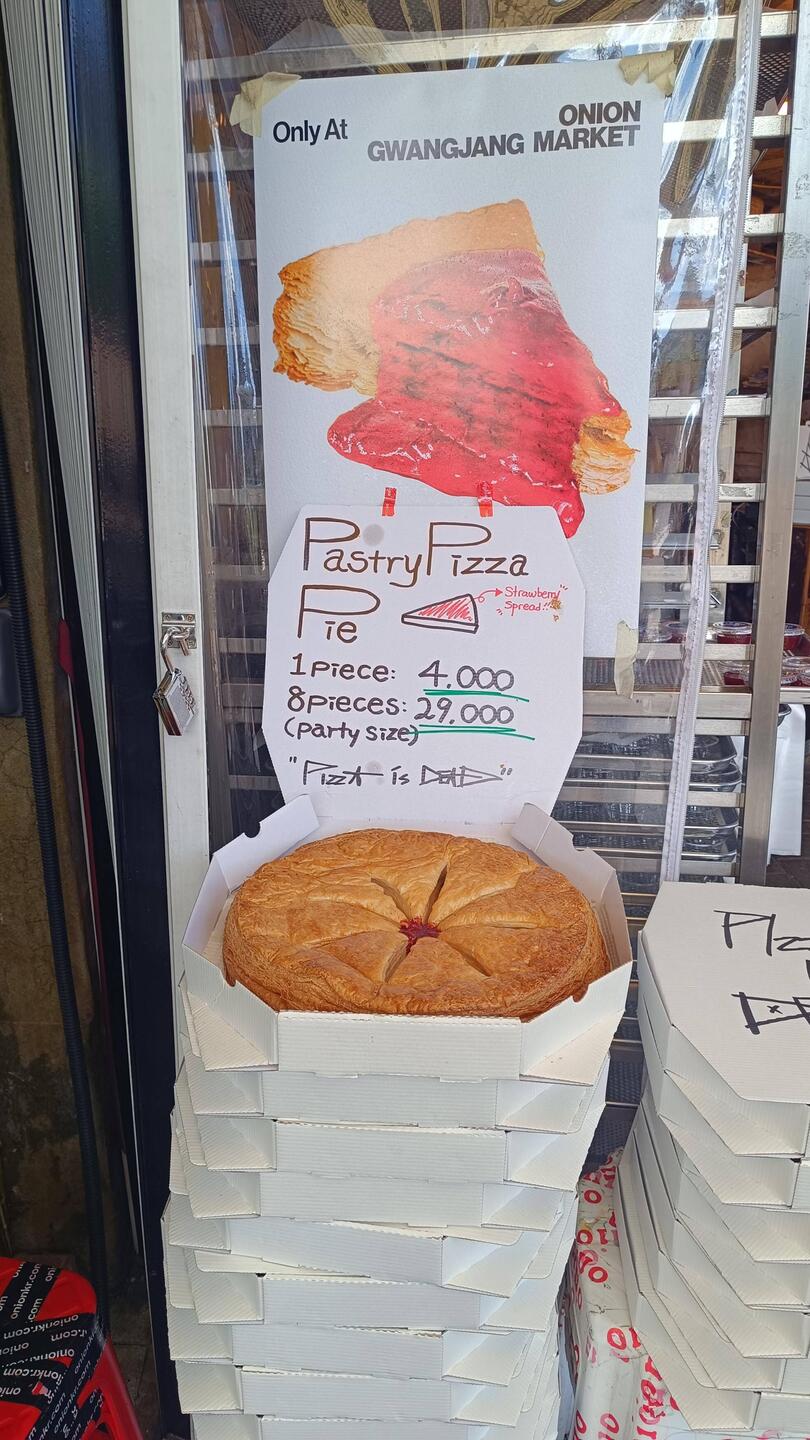 Only At
ONION
GWANGJANG MARKET
Pastry Pizza
Pie
"Strawberry
Spread!!"
1 piece: 4.000
8 pieces: 29.000
(party size)
"Pizza is DEAD"
onionkr.com